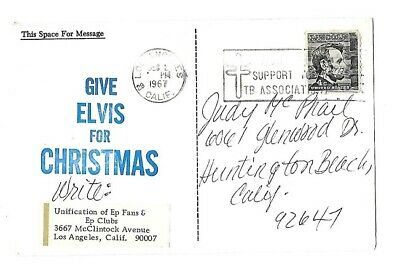 This Space For Message
GIVE
ELVIS
FOR
CHRISTMAS
Write:
Unification of Ep Fans &
Ep Clubs
3667 McClintock Avenue
Los Angeles, Calif. 90007
PM
1967
CALIF.
SUPPORT
TB ASSOCIAT
Judy Mc Phail
Glenwood Dr.
Huntington Beach,
Calif.
92647